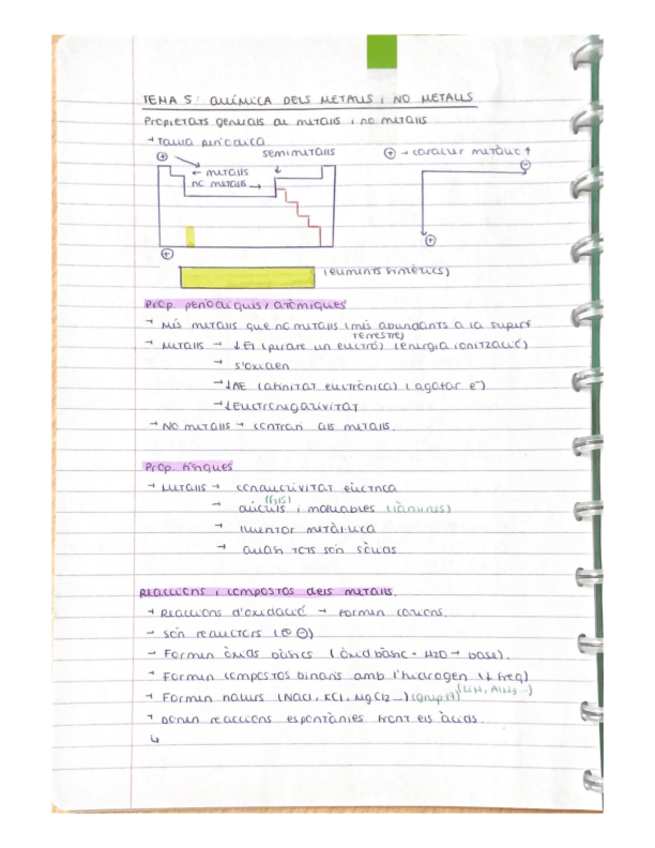 TEMA 5: QUÍMICA DELS METALLS I NO METALLS
Propietats generals de metalls i no metalls
→ Taula periòdica
semimetalls
⊕ → caràcter metàl·lic ↑
⊕
← metalls
no metalls →
⊖
⊕
⊕
(elements simètrics)
Prop. periòdiques / atòmiques
→ Més metalls que no metalls (més abundants a la superf
terrestre)
→ Metalls → ↓EI (perdre un electró) (energia ionització)
→ s'oxiden
→ ↓AE (afinitat electrònica) (agafar e⁻)
→ ↓Electronegativitat
→ No metalls → contrari als metalls.
Prop. físiques
→ Metalls → conductivitat elèctrica
→ dúctils (fils) i mal·leables (làmines)
→ lluentor metàl·lica
→ quasi tots són sòlids
Reaccions i compostos dels metalls.
→ Reaccions d'oxidació → formen cations.
→ són reductors
→ Formen òxids bàsics (òxid bàsic + H2O → base).
→ Formen compostos binaris amb l'hidrogen (↓ freq)
(LiH, AlH3 ...)
→ Formen halurs (NaCl, KCl, MgCl2 ...) (grup 17)
→ Donen reaccions espontànies front els àcids.
↳